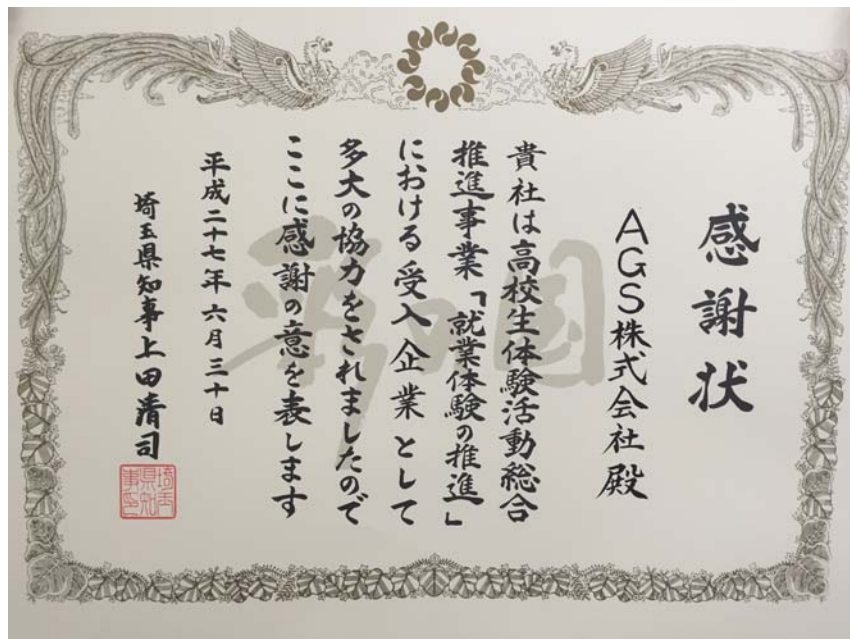 感謝状
AGS株式会社殿
貴社は高校生体験活動総合
推進事業「就業体験の推進」
における受入企業として
多大の協力をされましたので
ここに感謝の意を表します
平成二十七年六月三十日
埼玉県知事上田清司
埼玉
県知
事印
彩の国